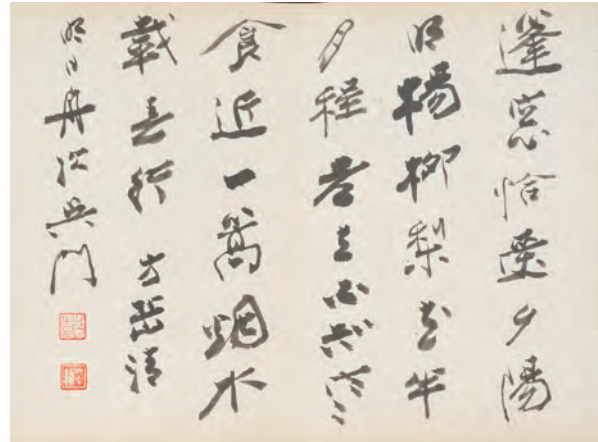 篷窓恰受夕陽
明楊柳梨花半
月程老去不知寒
食近一篙烟水
載春行 方岳清
明日舟次吳門